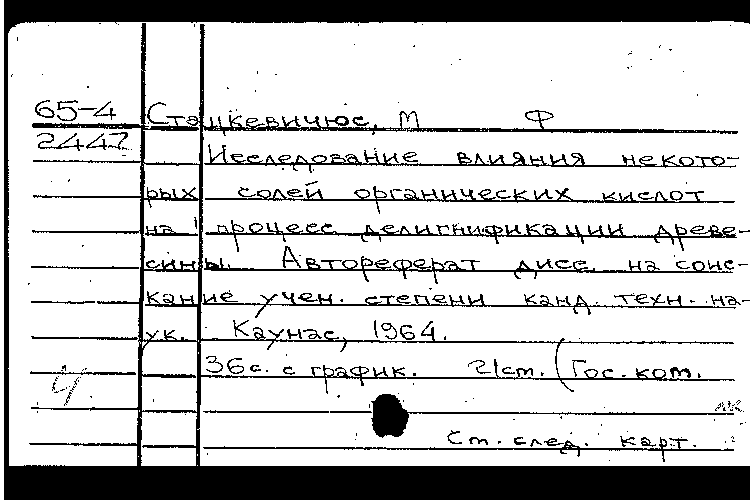 65-4 Сташкевичюс, М Ф
2447
Исследование влияния некото-
рых солей органических кислот
на процесс делигнификации древе-
сины. Автореферат дисс. на соис-
кание учен. степени канд. техн. на-
ук. Каунас, 1964.
36с. с график. 21см. (Гос. ком.
Ч
См. след. карт.